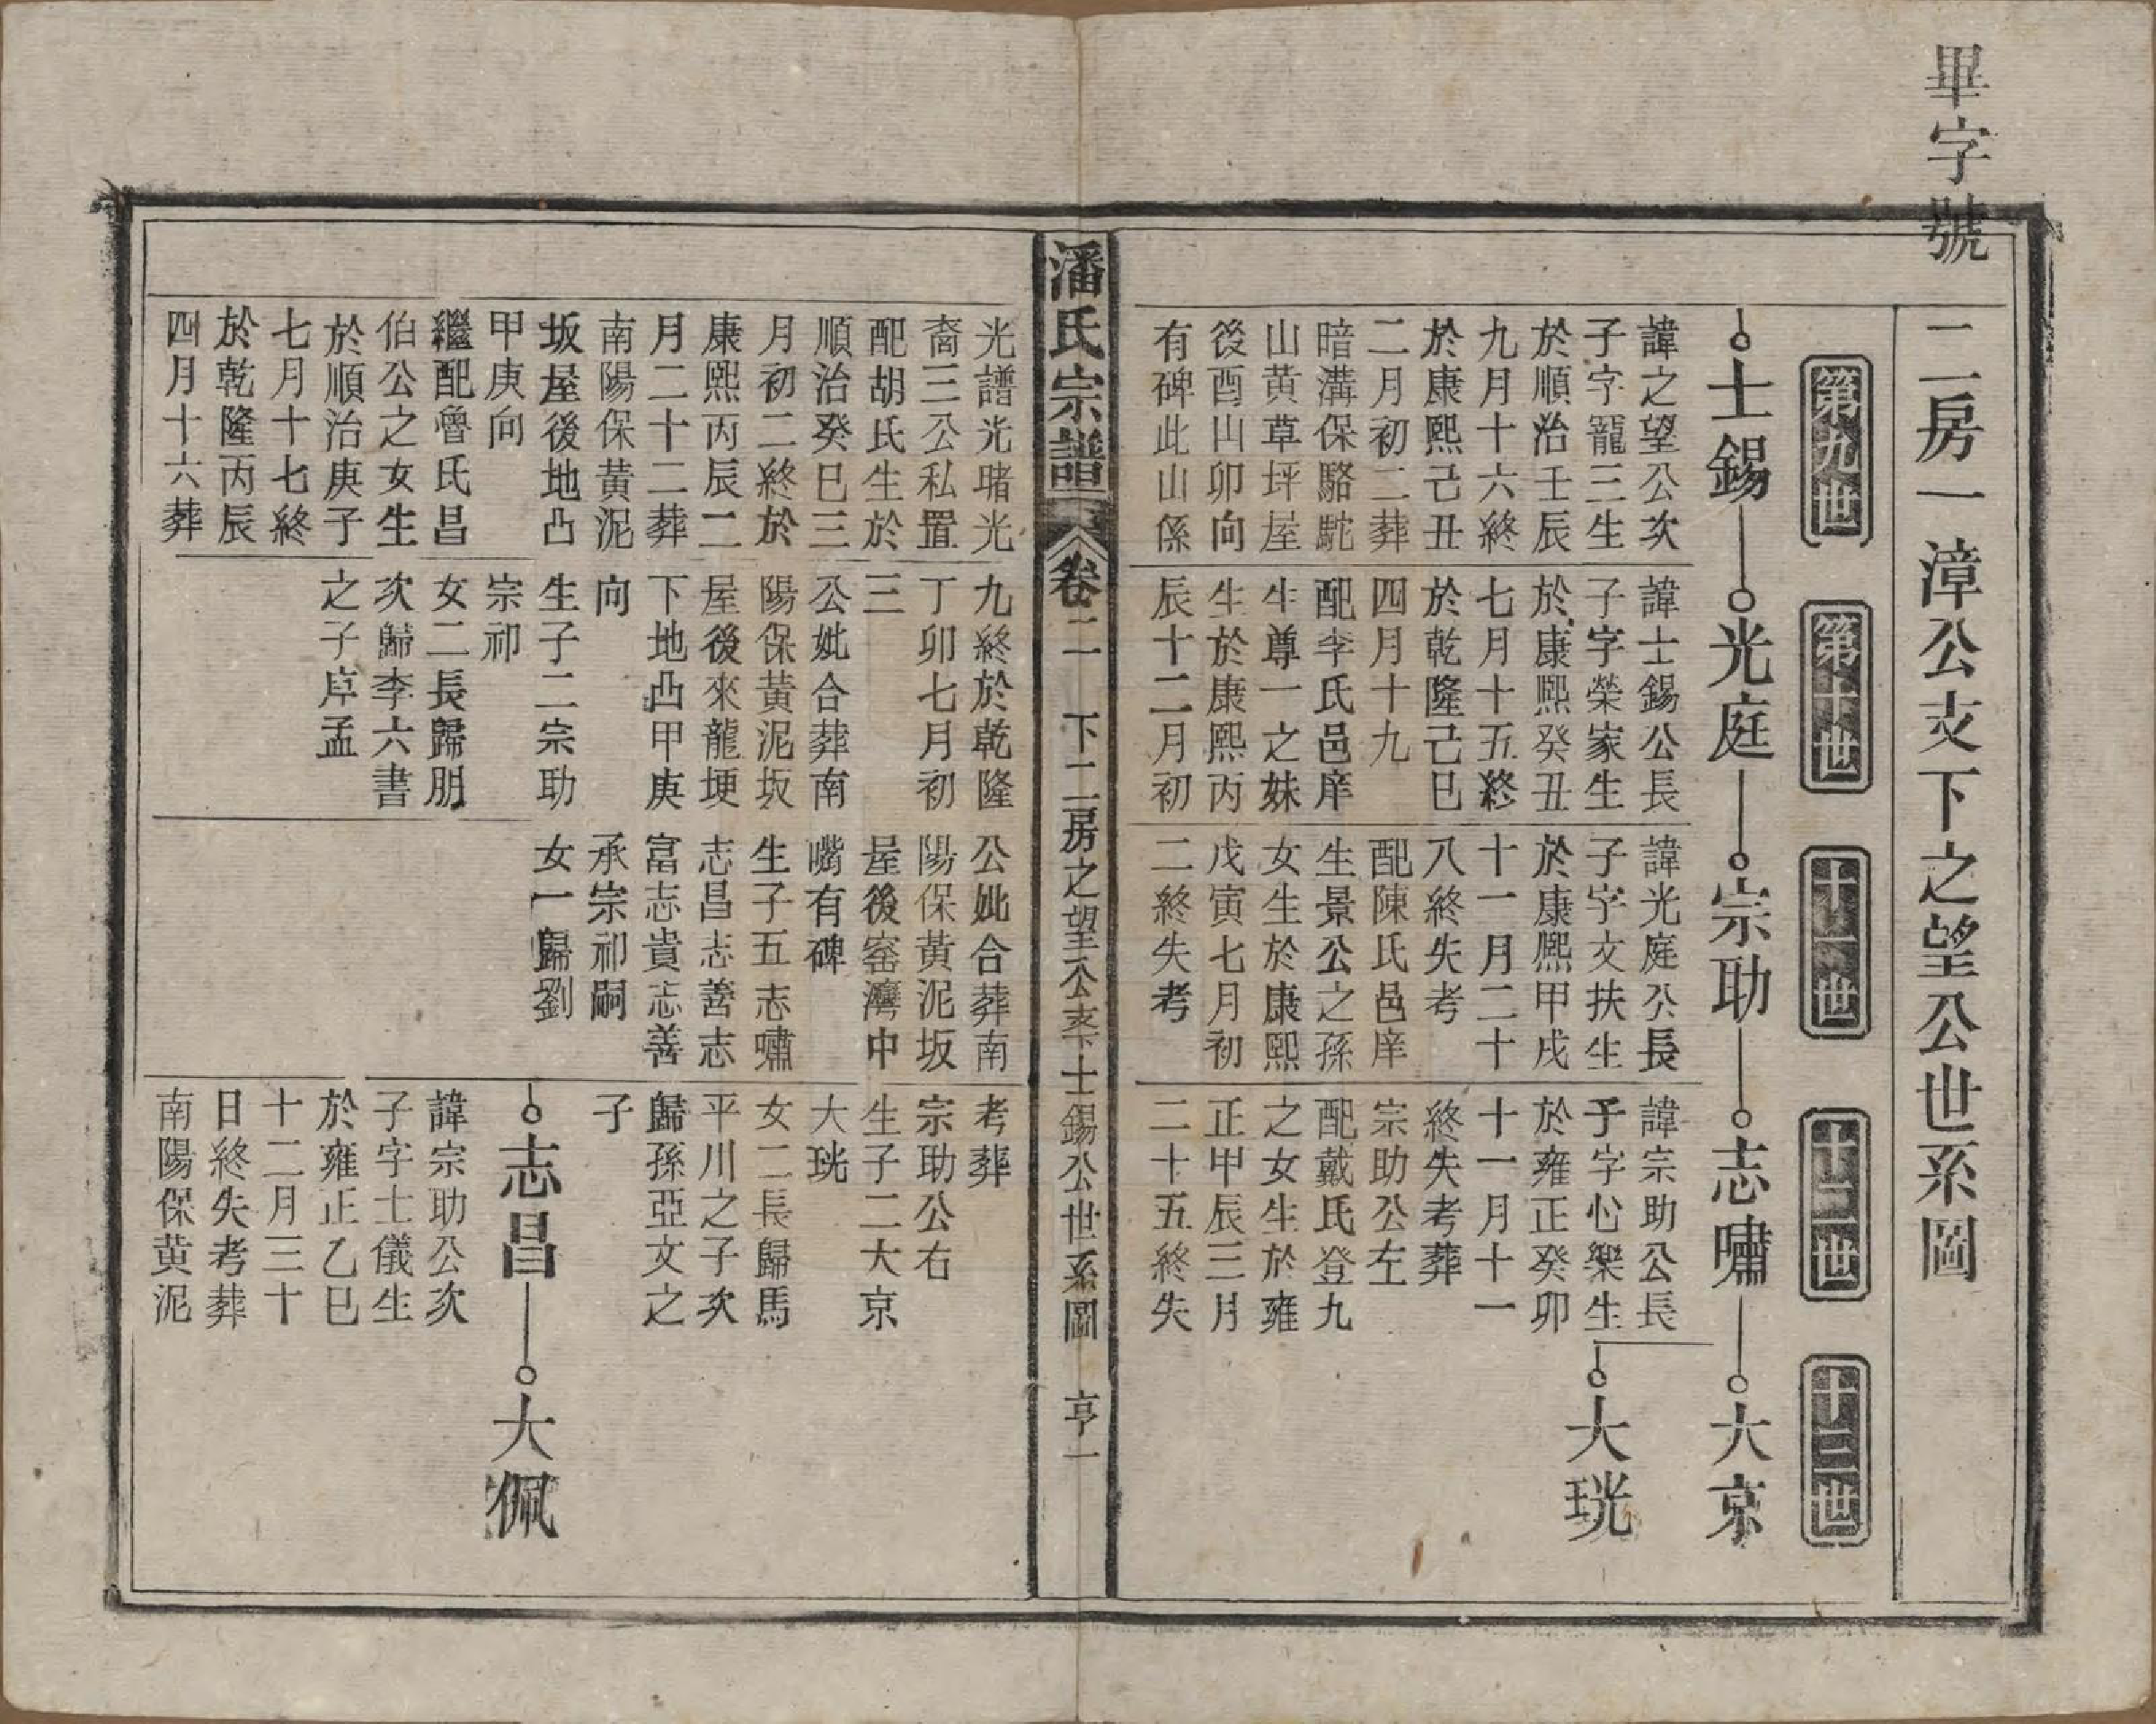 畢字號
二房一漳公支下之望公世系圖
第九世
第十世
十一世
十二世
十三世
士錫
光庭
宗助
志嘯
大京
大珖
諱之望公次
子字龍三生
於順治壬辰
九月十六終
於康熙己丑
二月初二葬
暗溝保駱駝
山黃草坪屋
後酉山卯向
有碑此山係
光譜光睹光
裔三公私置
配胡氏生於
順治癸巳三
月初二終於
康熙丙辰二
月二十二葬
南陽保黃泥
坂屋後地凸
甲庚向
繼配魯氏昌
伯公之女生
於順治庚子
七月十七終
於乾隆丙辰
四月十六葬
諱士錫公長
子字榮家生
於康熙癸丑
七月十五終
於乾隆己巳
四月十九
配李氏邑庠
生尊一之妹
生於康熙丙
辰十二月初
九終於乾隆
丁卯七月初
三
公妣合葬南
陽保黃泥坂
屋後來龍埂
下地凸甲庚
向
生子二宗助
宗祁
女二長歸朋
次歸李六書
之子岸孟
諱光庭公長
子字文扶生
於康熙甲戌
十一月二十
八終失考
配陳氏邑庠
生景公之孫
女生於康熙
戊寅七月初
二終失考
公妣合葬南
陽保黃泥坂
屋後窑灣中
嘴有碑
生子五志嘯
志昌志善志
富志貴志善
承宗祁嗣
女一歸劉
諱宗助公長
子字心樂生
於雍正癸卯
十一月十一
終失考葬
宗助公左
配戴氏登九
之女生於雍
正甲辰三月
二十五終失
考葬
宗助公右
生子二大京
大珖
女二長歸馬
平川之子次
歸孫亞文之
子
志昌
大佩
諱宗助公次
子字士儀生
於雍正乙巳
十二月三十
日終失考葬
南陽保黃泥
潘氏宗譜
卷二 下二房之望公支下士錫公世系圖 亨一